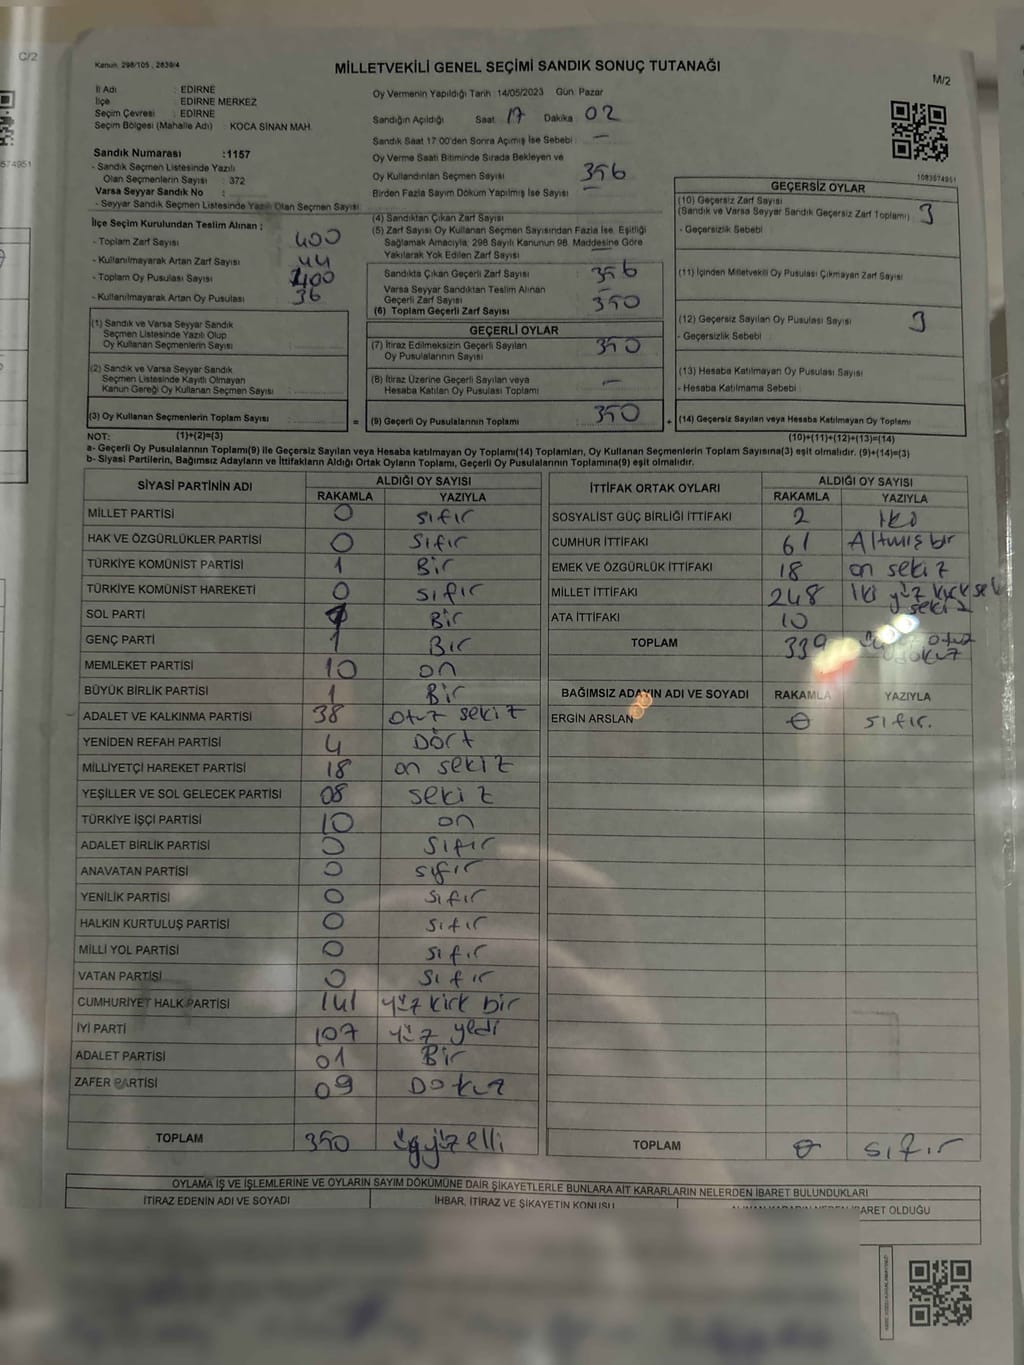 C/2
Kanun: 298/105 , 2839/4
MİLLETVEKİLİ GENEL SEÇİMİ SANDIK SONUÇ TUTANAĞI
M/2
İl Adı : EDİRNE
İlçe : EDİRNE MERKEZ
Seçim Çevresi : EDİRNE
Seçim Bölgesi (Mahalle Adı) : KOCA SİNAN MAH.
Oy Vermenin Yapıldığı Tarih: 14/05/2023 Gün: Pazar
Sandığın Açıldığı Saat: 17 Dakika: 02
Sandık Saat 17:00'den Sonra Açılmış İse Sebebi : —
Oy Verme Saati Bitiminde Sırada Bekleyen ve
Oy Kullandırılan Seçmen Sayısı 356
Birden Fazla Sayım Döküm Yapılmış İse Sayısı —
Sandık Numarası :1157
- Sandık Seçmen Listesinde Yazılı
Olan Seçmenlerin Sayısı : 372
Varsa Seyyar Sandık No :
- Seyyar Sandık Seçmen Listesinde Yazılı Olan Seçmen Sayısı
İlçe Seçim Kurulundan Teslim Alınan ;
- Toplam Zarf Sayısı 400
- Kullanılmayarak Artan Zarf Sayısı 44
- Toplam Oy Pusulası Sayısı 400
- Kullanılmayarak Artan Oy Pusulası 36
(1) Sandık ve Varsa Seyyar Sandık
Seçmen Listesinde Yazılı Olup
Oy Kullanan Seçmenlerin Sayısı
(2) Sandık ve Varsa Seyyar Sandık
Seçmen Listesinde Kayıtlı Olmayan
Kanun Gereği Oy Kullanan Seçmen Sayısı
(3) Oy Kullanan Seçmenlerin Toplam Sayısı
(4) Sandıktan Çıkan Zarf Sayısı
(5) Zarf Sayısı Oy Kullanan Seçmen Sayısından Fazla ise, Eşitliği
Sağlamak Amacıyla, 298 Sayılı Kanunun 98. Maddesine Göre
Yakılarak Yok Edilen Zarf Sayısı
Sandıkta Çıkan Geçerli Zarf Sayısı 356
Varsa Seyyar Sandıktan Teslim Alınan
Geçerli Zarf Sayısı —
(6) Toplam Geçerli Zarf Sayısı 350
GEÇERLİ OYLAR
(7) İtiraz Edilmeksizin Geçerli Sayılan
Oy Pusulalarının Sayısı 350
(8) İtiraz Üzerine Geçerli Sayılan veya
Hesaba Katılan Oy Pusulası Toplamı —
= (9) Geçerli Oy Pusulalarının Toplamı 350
1083574951
GEÇERSİZ OYLAR
(10) Geçersiz Zarf Sayısı
(Sandık ve Varsa Seyyar Sandık Geçersiz Zarf Toplamı) 3
- Geçersizlik Sebebi :
(11) İçinden Milletvekili Oy Pusulası Çıkmayan Zarf Sayısı
(12) Geçersiz Sayılan Oy Pusulası Sayısı 3
- Geçersizlik Sebebi :
(13) Hesaba Katılmayan Oy Pusulası Sayısı
- Hesaba Katılmama Sebebi :
+ (14) Geçersiz Sayılan veya Hesaba Katılmayan Oy Toplamı
NOT: (1)+(2)=(3) (10)+(11)+(12)+(13)=(14)
a- Geçerli Oy Pusulalarının Toplamı(9) ile Geçersiz Sayılan veya Hesaba katılmayan Oy Toplamı(14) Toplamları, Oy Kullanan Seçmenlerin Toplam Sayısına(3) eşit olmalıdır. (9)+(14)=(3)
b- Siyasi Partilerin, Bağımsız Adayların ve İttifakların Aldığı Ortak Oyların Toplamı, Geçerli Oy Pusulalarının Toplamına(9) eşit olmalıdır.
SİYASİ PARTİNİN ADI ALDIĞI OY SAYISI
RAKAMLA YAZIYLA
MİLLET PARTİSİ 0 sıfır
HAK VE ÖZGÜRLÜKLER PARTİSİ 0 Sıfır
TÜRKİYE KOMÜNİST PARTİSİ 1 Bir
TÜRKİYE KOMÜNİST HAREKETİ 0 sıfır
SOL PARTİ 1 Bir
GENÇ PARTİ 1 Bir
MEMLEKET PARTİSİ 10 on
BÜYÜK BİRLİK PARTİSİ 1 Bir
ADALET VE KALKINMA PARTİSİ 38 otuz sekiz
YENİDEN REFAH PARTİSİ 4 Dört
MİLLİYETÇİ HAREKET PARTİSİ 18 on sekiz
YEŞİLLER VE SOL GELECEK PARTİSİ 08 sekiz
TÜRKİYE İŞÇİ PARTİSİ 10 on
ADALET BİRLİK PARTİSİ 0 Sıfır
ANAVATAN PARTİSİ 0 sıfır
YENİLİK PARTİSİ 0 sıfır
HALKIN KURTULUŞ PARTİSİ 0 sıfır
MİLLİ YOL PARTİSİ 0 sıfır
VATAN PARTİSİ 0 sıfır
CUMHURİYET HALK PARTİSİ 141 yüz kırk bir
İYİ PARTİ 107 yüz yedi
ADALET PARTİSİ 01 Bir
ZAFER PARTİSİ 09 Dokuz
TOPLAM 350 üçyüz elli
İTTİFAK ORTAK OYLARI ALDIĞI OY SAYISI
RAKAMLA YAZIYLA
SOSYALİST GÜÇ BİRLİĞİ İTTİFAKI 2 İki
CUMHUR İTTİFAKI 61 Altmış bir
EMEK VE ÖZGÜRLÜK İTTİFAKI 18 on sekiz
MİLLET İTTİFAKI 248 İki yüz kırk sek
sekiz
ATA İTTİFAKI 10
TOPLAM 339 otuz
dokuz
BAĞIMSIZ ADAYIN ADI VE SOYADI RAKAMLA YAZIYLA
ERGİN ARSLAN 0 sıfır.
TOPLAM 0 sıfır
OYLAMA İŞ VE İŞLEMLERİNE VE OYLARIN SAYIM DÖKÜMÜNE DAİR ŞİKAYETLERLE BUNLARA AİT KARARLARIN NELERDEN İBARET BULUNDUKLARI
İTİRAZ EDENİN ADI VE SOYADI İHBAR, İTİRAZ VE ŞİKAYETİN KONUSU ALINAN KARARIN NEDEN İBARET OLDUĞU